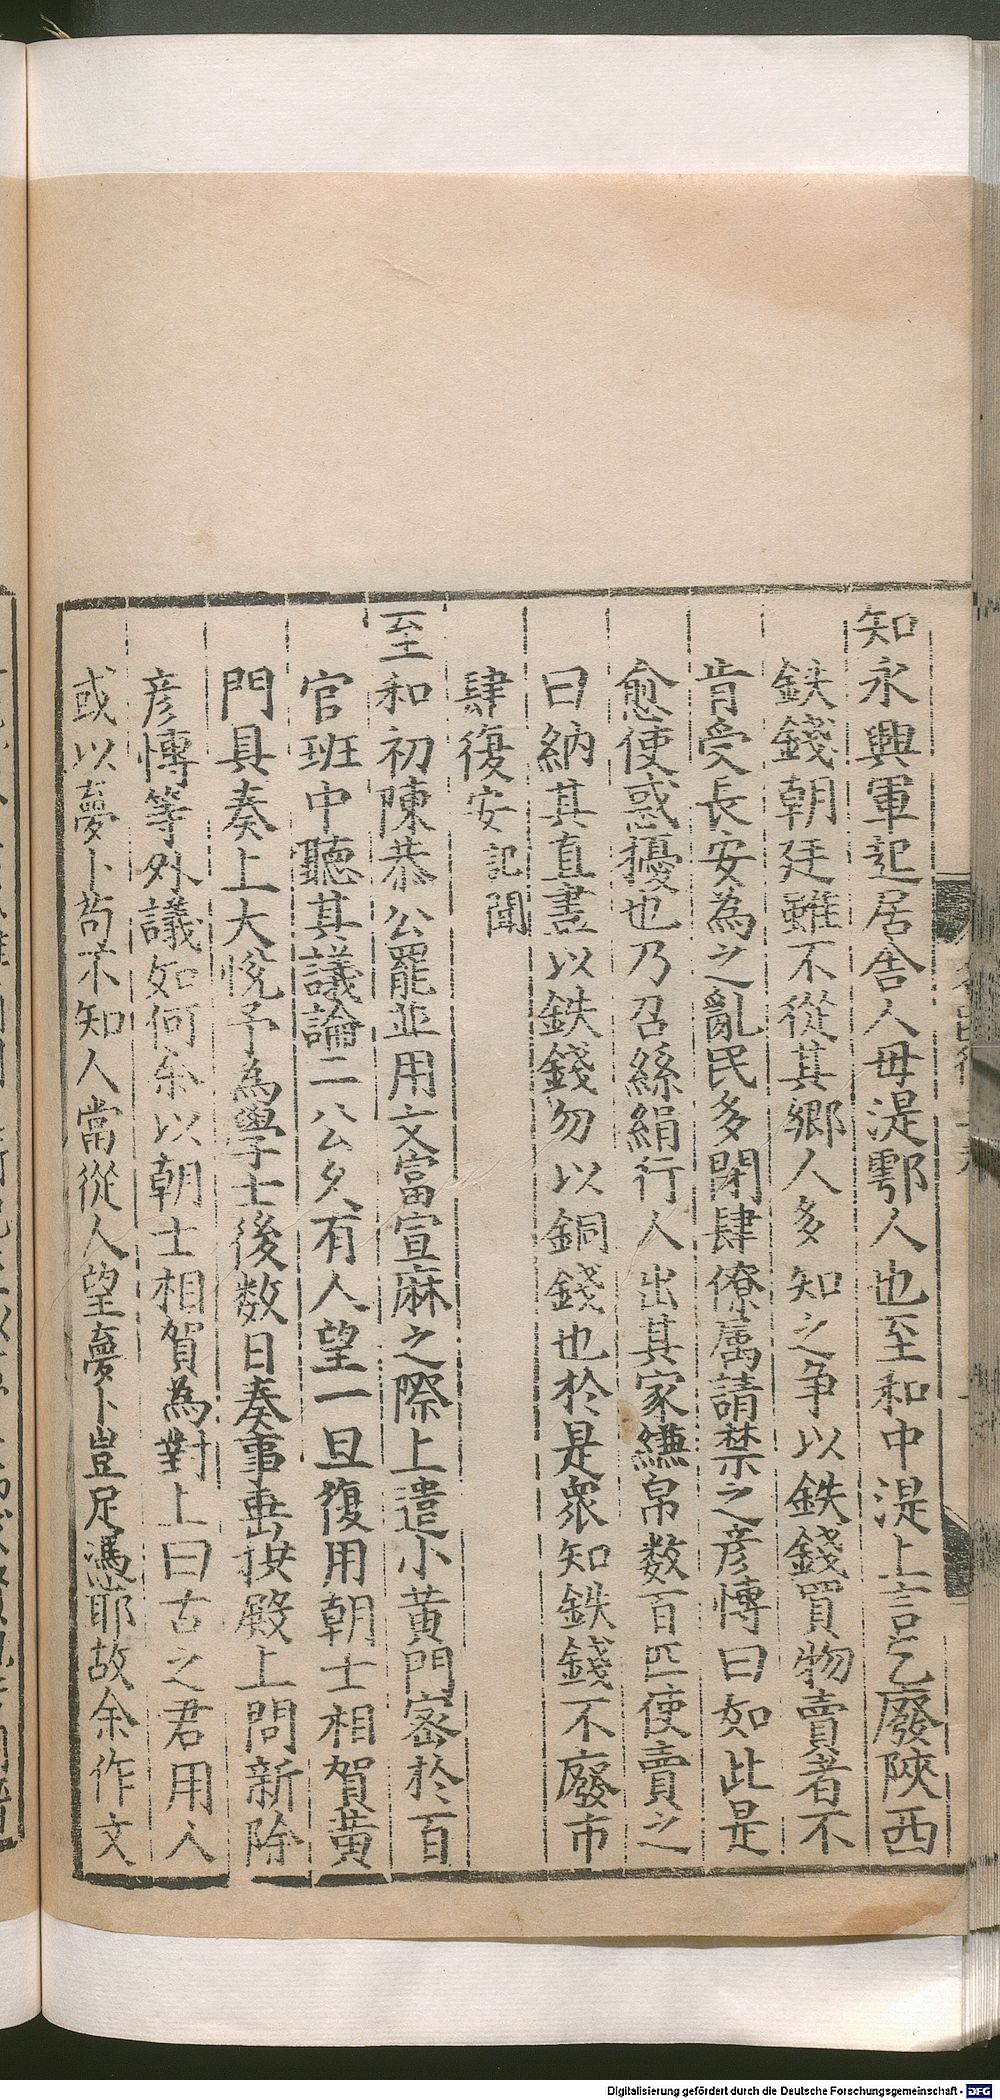 知永興軍起居舎人毋湜鄠人也至和中湜上言乞廢陝西
鉄錢朝廷雖不從其鄉人多知之争以鉄錢買物賣者不
肯受長安為之亂民多閉肆僚属請禁之彦愽曰如此是
愈使惑擾也乃召絲絹行人出其家縑帛数百匹使賣之
曰納其直盡以鉄錢勿以銅錢也於是衆知鉄錢不廢市
肆復安記聞
至和初陳恭公罷並用文富宣麻之際上遣小黄門密於百
官班中聽其議論二公久有人望一旦復用朝士相賀黄
門具奏上大悅予為學士後数日奏事垂拱殿上問新除
彦愽等外議如何余以朝士相賀為對上曰古之君用人
或以夢卜苟不知人當從人望夢卜豈足馮耶故余作文
Digitalisierung gefördert durch die Deutsche Forschungsgemeinschaft - DFG